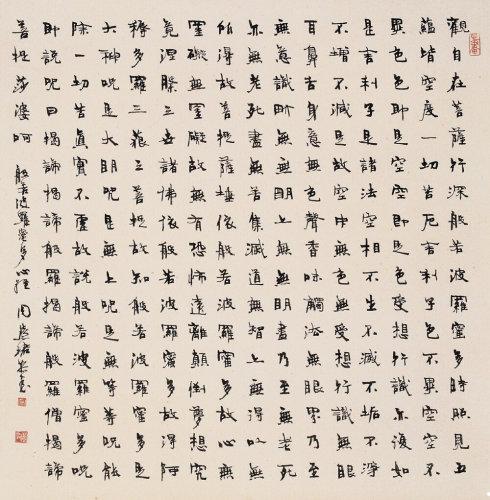 觀自在菩薩行深般若波羅蜜多時照見五
蘊皆空度一切苦厄舍利子色不異空空不
異色色即是空空即是色受想行識亦復如
是舍利子是諸法空相不生不滅不垢不淨
不增不減是故空中無色無受想行識無眼
耳鼻舌身意無色聲香味觸法無眼界乃至
無意識界無無明亦無無明盡乃至無老死
亦無老死盡無苦集滅道無智亦無得以無
所得故菩提薩埵依般若波羅蜜多故心無
罣礙無罣礙故無有恐怖遠離顛倒夢想究
竟涅槃三世諸佛依般若波羅蜜多故得阿
耨多羅三藐三菩提故知般若波羅蜜多是
大神呪是大明呪是無上呪是無等等呪能
除一切苦真實不虛故說般若波羅蜜多呪
即說呪曰揭諦揭諦般羅揭諦般羅僧揭諦
菩提莎婆呵
般若波羅蜜多心經 周